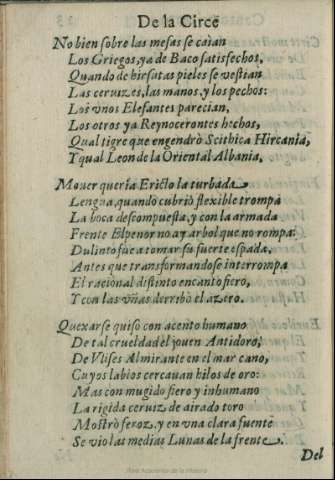 De la Circe
No bien sobre las mesas se caìan
Los Griegos, ya de Baco satisfechos,
Quando de hirsutas pieles se vestian
Las ceruizes, las manos, y los pechos:
Los vnos Elefantes parecian,
Los otros ya Reynocerontes hechos,
Qual tigre que engendrò Scithica Hircania,
Y qual Leon de la Oriental Albania.
Mouer queria Ericto la turbada
Lengua, quando cubriò flexible trompa
La boca descompuesta, y con la armada
Frente Elpenor no ay arbol que no rompa:
Dulinto fue a tomar su fuerte espada,
Antes que transformandose interrompa
El racional distinto encanto fiero,
Y con las vñas derribò el azero.
Quexarse quiso con acento humano
De tal crueldad el jouen Antidoro,
De Vlises Almirante en el mar cano,
Cuyos labios cercauan hilos de oro:
Mas con mugido fiero y inhumano
La rigida ceruiz de airado toro
Mostrò feroz, y en vna clara fuente
Se vio las medias Lunas de la frente.
Del
Real Academia de la Historia